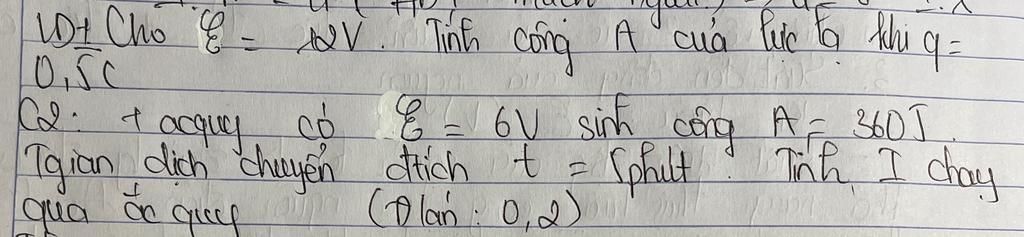 VD1: Cho ℰ = 12V. Tính công A của lực lạ khi q =
0,5C
C2: 1 acquy có ℰ = 6V sinh công A = 360J.
Tgian dịch chuyển đtích t = 5phút. Tính I chạy
qua ắc quy (Đ/án: 0,2)